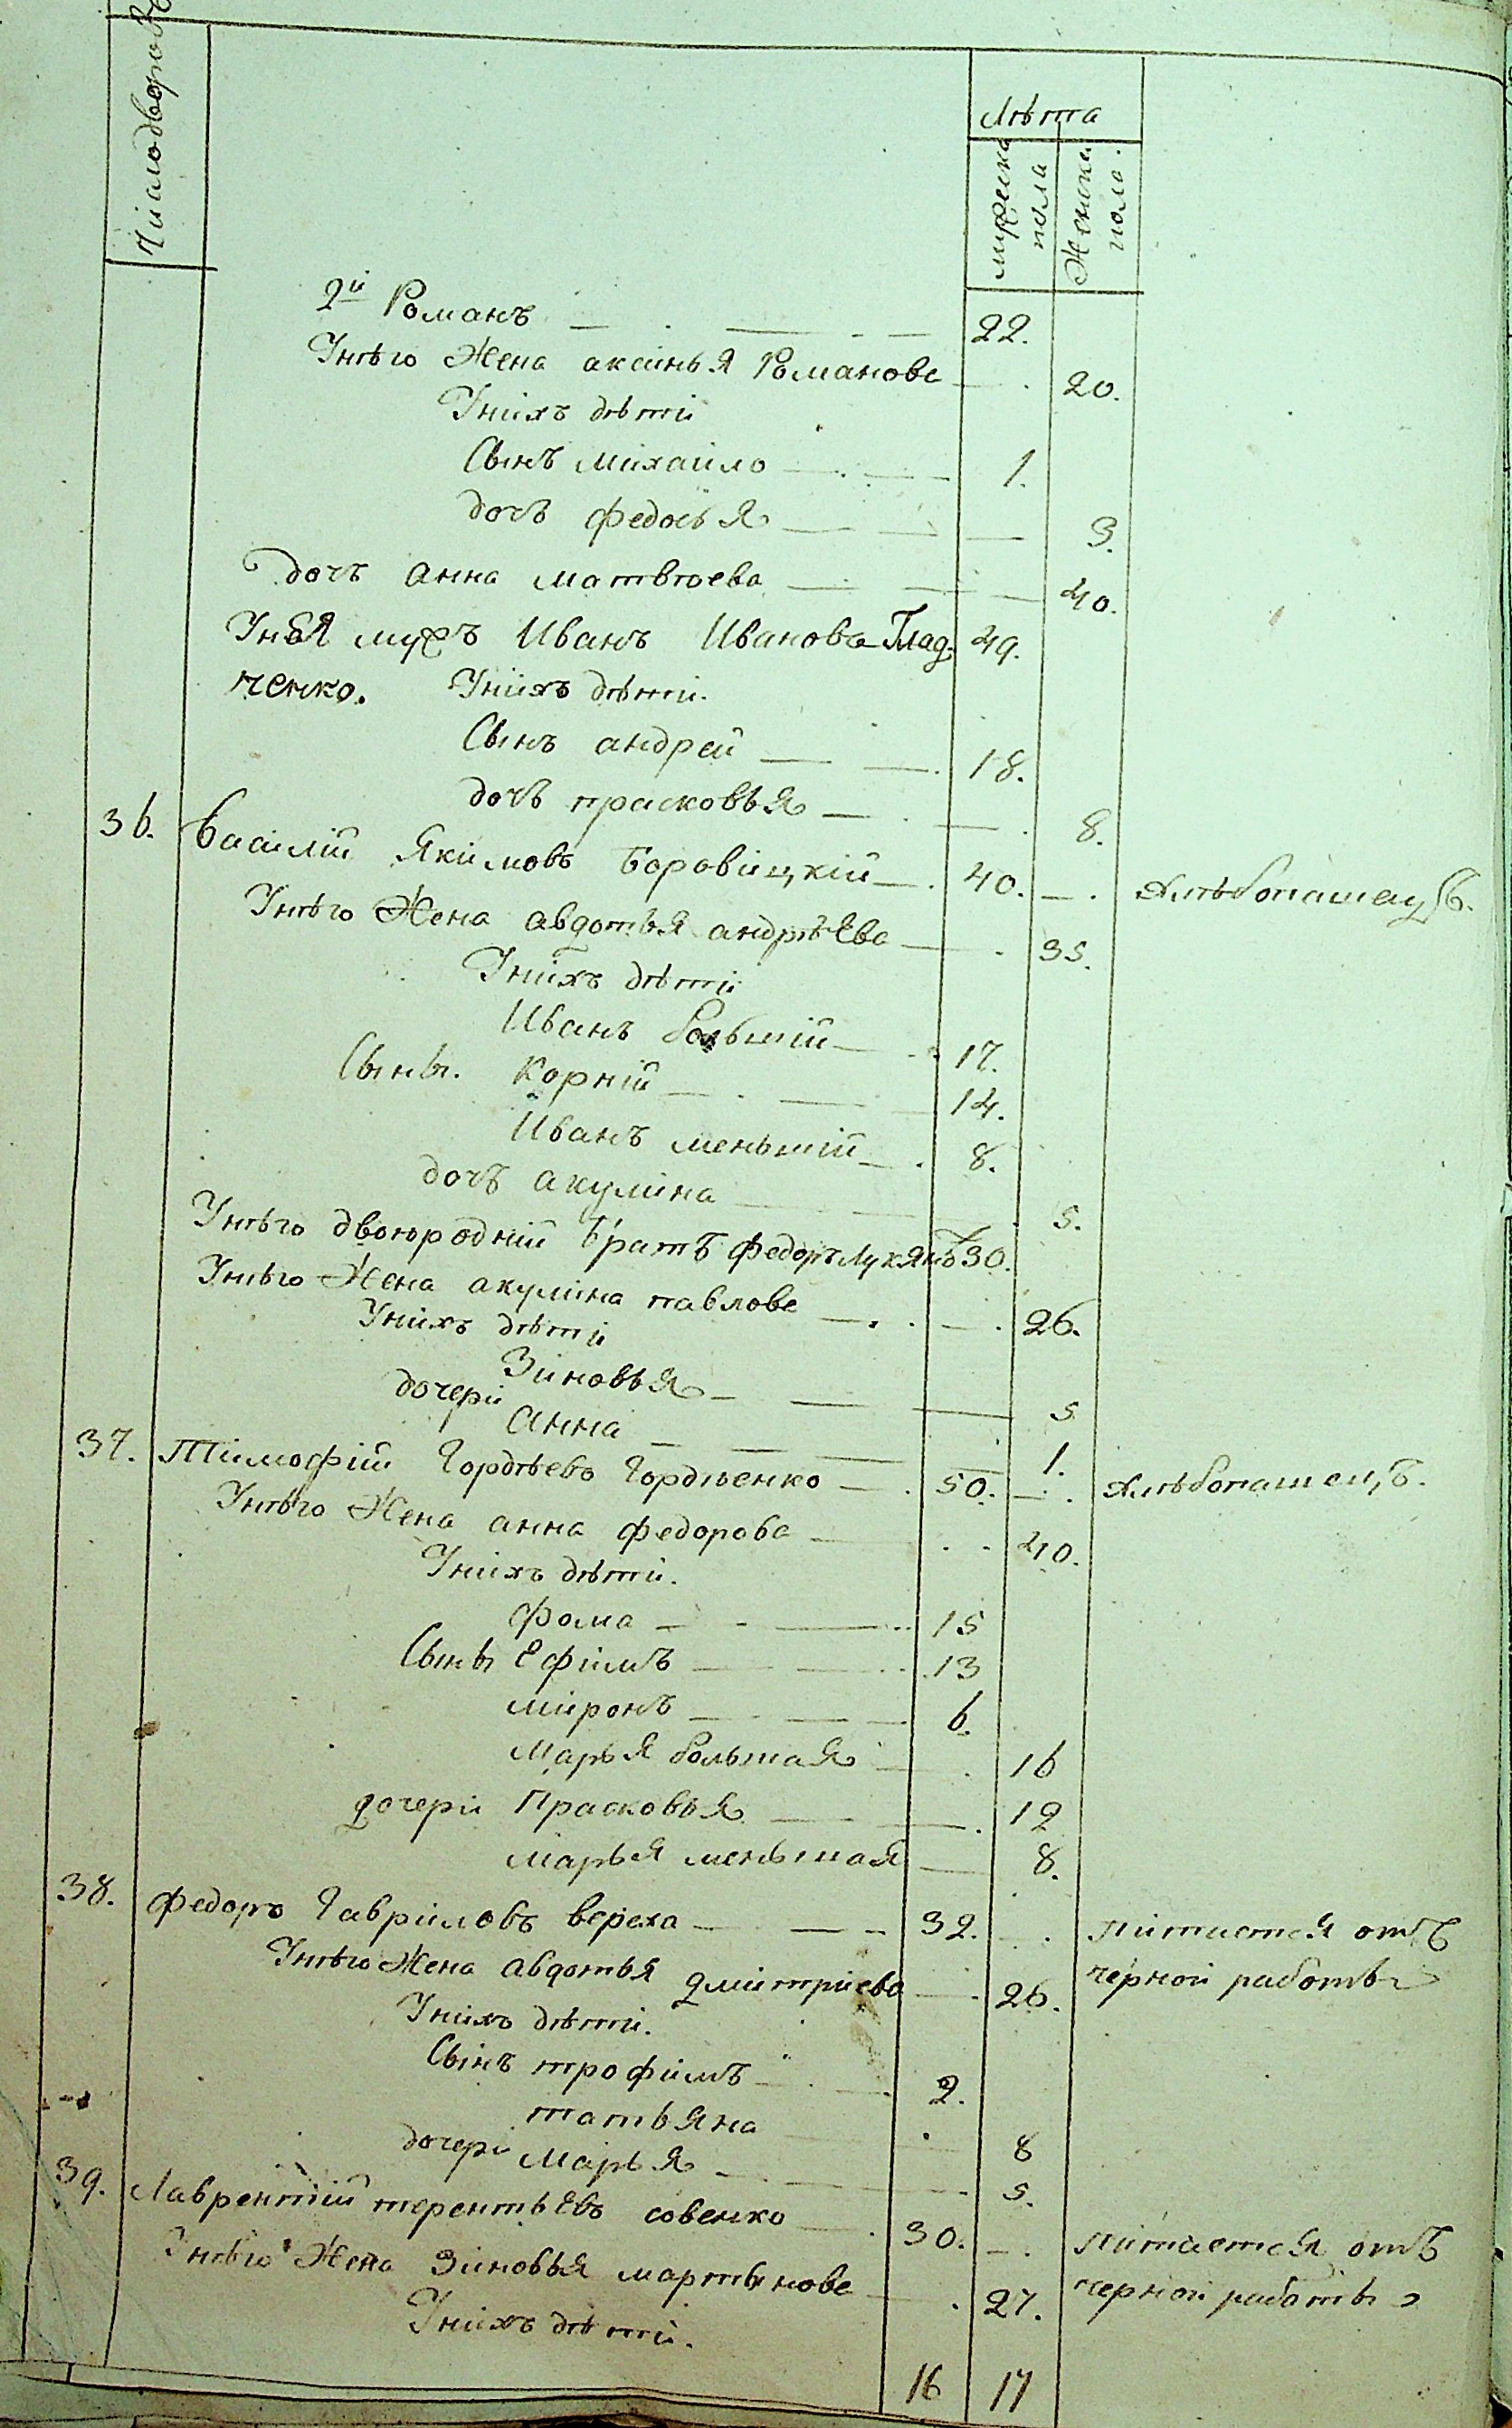 Число дворовъ
Лѣта
мужеска пола
Женска пола.
2й Романъ 22.
Унѣго Жена аксинья Романова 20.
Унихъ дѣти
Сынъ михаило 1.
дочь федосья 3.
дочъ анна матвѣева 40.
Унея мужъ Иванъ Ивановъ Глад- 49.
ченко. Унихъ дѣти.
Сынъ андрей 18.
дочъ прасковья 8.
36. Василій Якимовъ Боровицкій 40. хлѣбопашецъ.
Унѣго Жена авдотья андрѣева 35.
Унихъ дѣти
Иванъ большій 17.
Сыны. Корній 14.
Иванъ меньшій 8.
дочъ акулина 5.
Унѣго двоюродній братъ федоръ Лукянъ 30.
Унѣго Жена акулина павлова 26.
Унихъ дѣти
Зиновья 5
дочери
анна 1.
37. Тимофій Гордѣевъ Гордѣенко 50. хлѣбопашецъ.
Унѣго Жена анна федорова 40.
Унихъ дѣти.
фома 15
Сыны Ефімъ 13
миронъ 6.
Марья большая 16
дочери Прасковья 12
марья меньшая 8.
38. федоръ Гавриловъ вереха 32. питается отъ
Унѣго Жена авдотья дмитриева 26. черной работы
Унихъ дѣти.
Сынъ трофимъ 2.
татьяна 8
дочери марья 5.
39. Лаврентій терентьевъ совенко 30. питается отъ
Унѣго Жена Зиновья мартынова 27. черной работы
Унихъ дѣти.
16 17